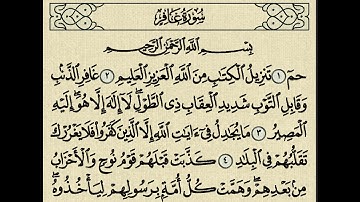 سُورَةُ غَافِرٍ
بِسْمِ اللَّهِ الرَّحْمَٰنِ الرَّحِيمِ
حمٓ ۝١ تَنزِيلُ ٱلْكِتَٰبِ مِنَ ٱللَّهِ ٱلْعَزِيزِ ٱلْعَلِيمِ ۝٢ غَافِرِ ٱلذَّنۢبِ
وَقَابِلِ ٱلتَّوْبِ شَدِيدِ ٱلْعِقَابِ ذِى ٱلطَّوْلِ ۖ لَآ إِلَٰهَ إِلَّا هُوَ ۖ إِلَيْهِ
ٱلْمَصِيرُ ۝٣ مَا يُجَٰدِلُ فِىٓ ءَايَٰتِ ٱللَّهِ إِلَّا ٱلَّذِينَ كَفَرُوا۟ فَلَا يَغْرُرْكَ
تَقَلُّبُهُمْ فِى ٱلْبِلَٰدِ ۝٤ كَذَّبَتْ قَبْلَهُمْ قَوْمُ نُوحٍ وَٱلْأَحْزَابُ
مِنۢ بَعْدِهِمْ ۖ وَهَمَّتْ كُلُّ أُمَّةٍۭ بِرَسُولِهِمْ لِيَأْخُذُوهُ ۖ